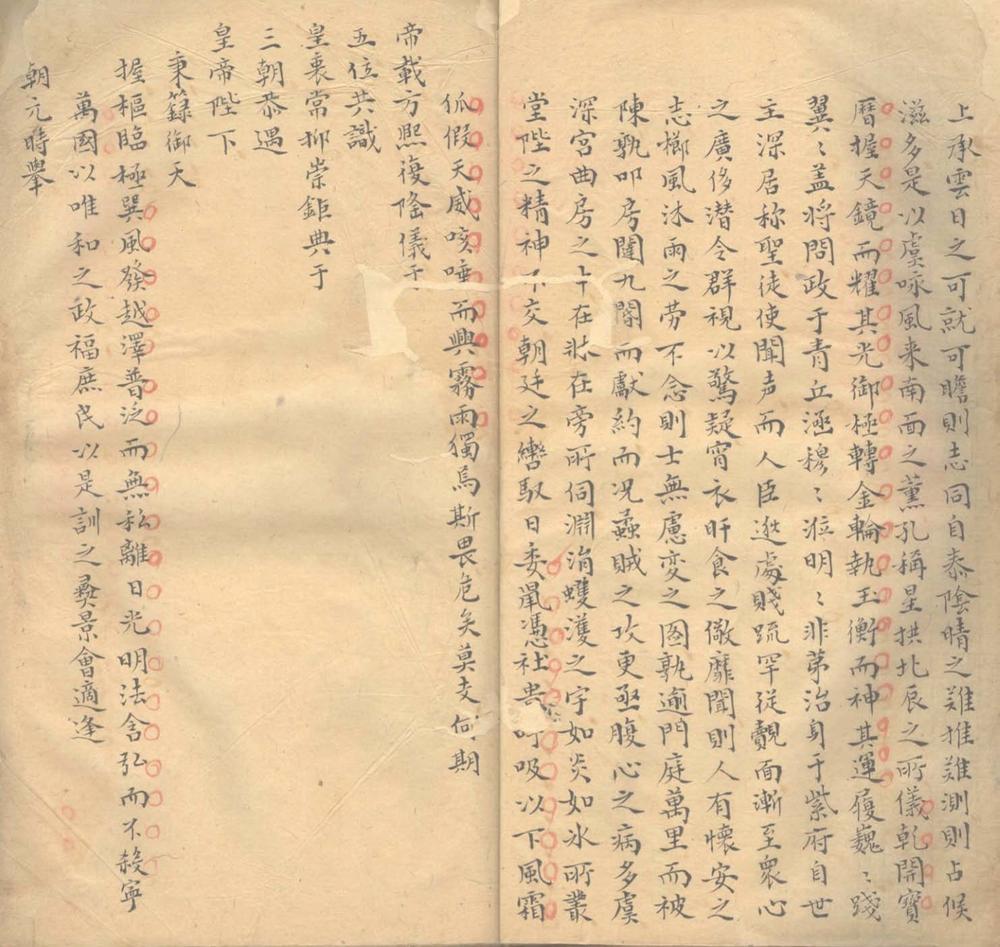 上承雲日之可就可瞻則志同自泰陰晴之難推難測則占候
滋多是以虞咏風来南面之薰孔稱星拱北辰之所儀乾開寶
曆握天鏡而耀其光御極轉金輪執玉衡而神其運履巍〻踐
翼〻盖将問政于青丘逓穆〻涖明〻非苐治身于紫府自世
主深居称聖徒使聞声而人臣逖處賤疏罕従覿面漸至衆心
之廣侈潜令群視以驚疑宵衣旰食之儆靡聞則人有懷安之
志櫛風沐雨之劳不念則士無慮变之圖孰逾門庭萬里而被
陳孰叩房闥九閽而獻約而况蟊賊之攻更亟腹心之病多虞
深宮曲房之 在牀在旁所伺淵涓蠖濩之宇如炎如冰所叢
堂陛之精神不交朝廷之轡馭日委鼠憑社 吸以下風霜
狐假天威咳唾而興霧雨獨烏斯畏危矣莫支何期
帝載方熙復隆儀于
五位共識
皇衷常抑崇鉅典于
三朝恭遇
皇帝陛下
秉籙御天
握樞臨極巽風發越澤普泛而無私離日光明法含弘而不殺寧
萬國以唯和之政福庶民以是訓之彞景會適逢
朝元時舉